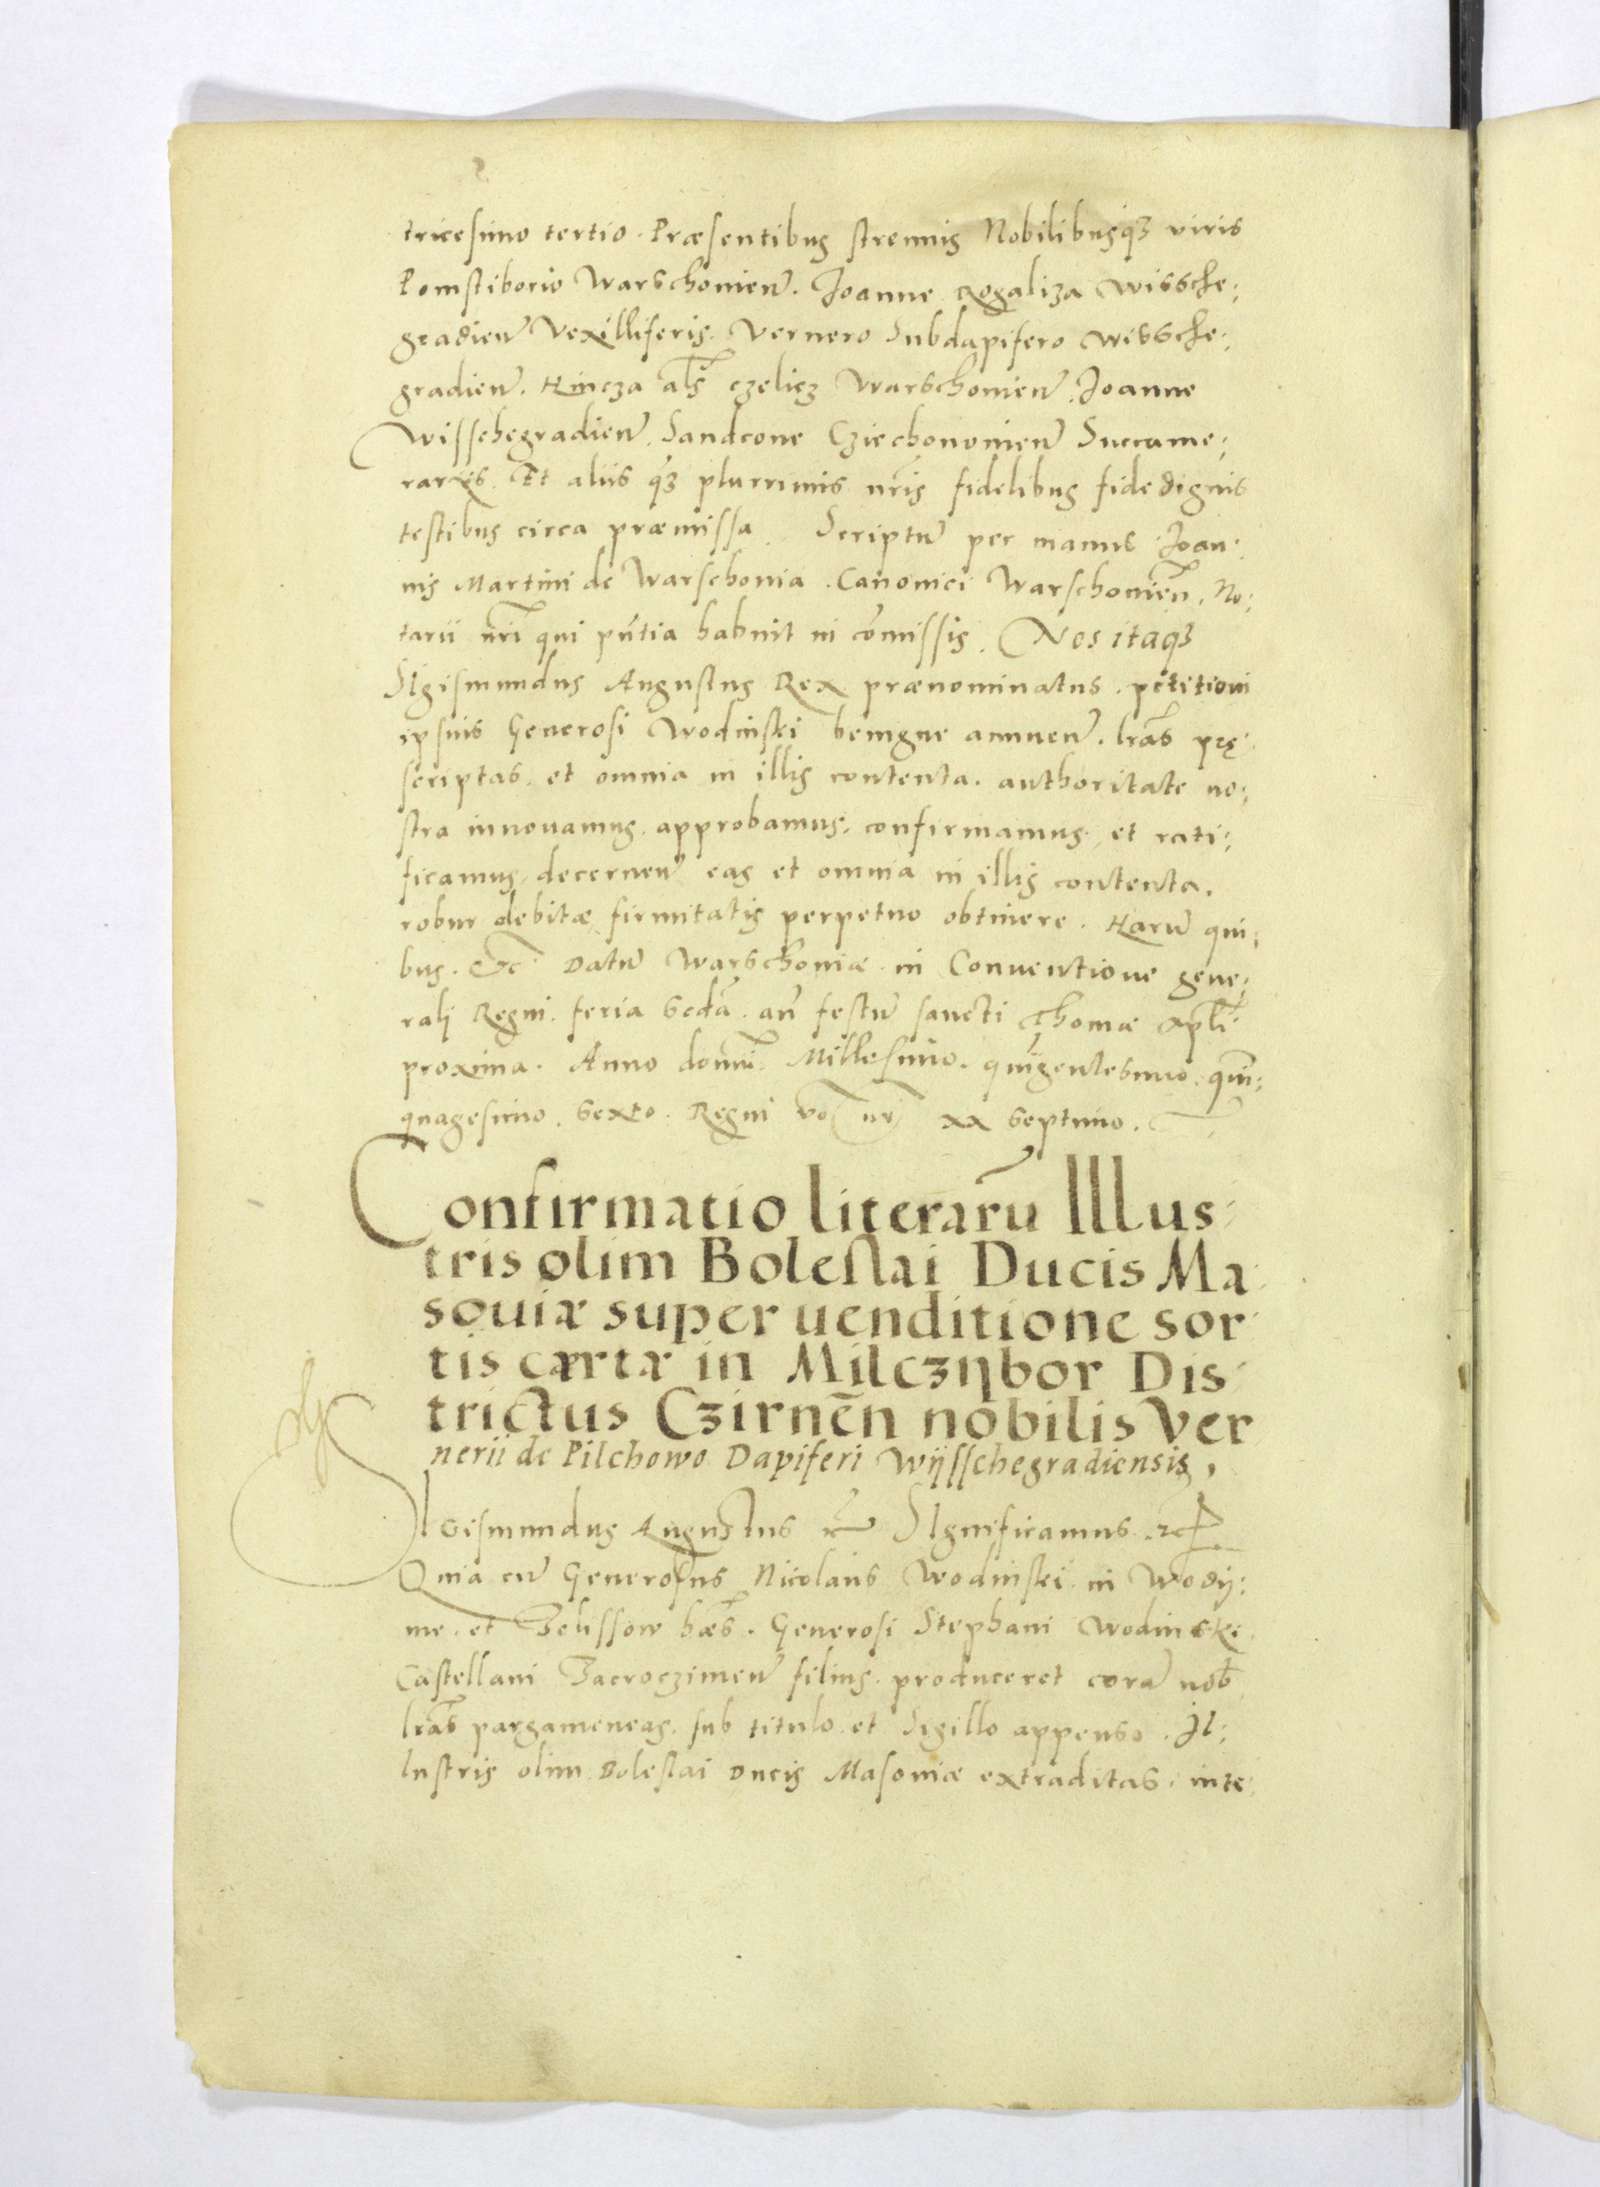 tricesimo tertio. Præsentibus strenuis Nobilibusqꝫ viris
Pomstiborio Warschouien̄. Joanne Rogaliza Wissche:
gradien̄ Vexilliferis. Vernero Subdapifero Wissche:
gradien̄. Hincza al̄s Czelisz Warschouien̄. Joanne
Wisschegradien̄. Sandcone Cziechonouien̄ Succame:
rariis. Et aliis qꝫ plurrimis nr̄is fidelibus fide dignis
testibus circa præmissa. Scriptū per manus Joan:
nis Martini de Warschouia. Canonici Warschouien̄. No:
tarii nr̄i qui pn̄tia habuit in cōmissis. Nos itaqꝫ
Sigismundus Augustus Rex prænominatus. petitioni
ipsius Generosi Wodinski benigne annuen̄. lr̄as prę
scriptas. et omnia in illis contenta. authoritate no:
stra innouamus. approbamus. confirmamus. et rati:
ficamus. decernen̄ eas et omnia in illis contenta.
robur debitæ firmitatis perpetuo obtinere. Harū qui:
bus. &c. Datū Warschouiæ. in Conuentione gene:
rali Regni. feria scdā. an̄ festū sancti Thomæ Apl̄i
proxima. Anno domi. Millesimo. quīgentesimo. quin:
quagesimo. sexto. Regni vo nr̄i xx septimo.
Confirmatio literarū Illus:
tris olim Boleslai Ducis Ma
souiæ super uenditione sor
tis cærtæ in Milczÿbor Dis
trictus Czirnēn nobilis Ver
nerii de Pilchowo Dapiferi Wÿsschegradiensis.
SIgismundus Augustus &c SIgnificamus. &c.
Quia cū Generosus Nicolaus Wodinski. in Wodÿ:
nie. et Zelissow hæs. Generosi Stephani Wodinski
Castellani Zacroczimen̄ filius. produceret corā nob
lr̄as pargameneas. sub titulo et Sigillo appenso. Il:
lustris olim Boleslai Ducis Masouiæ extraditas. inte